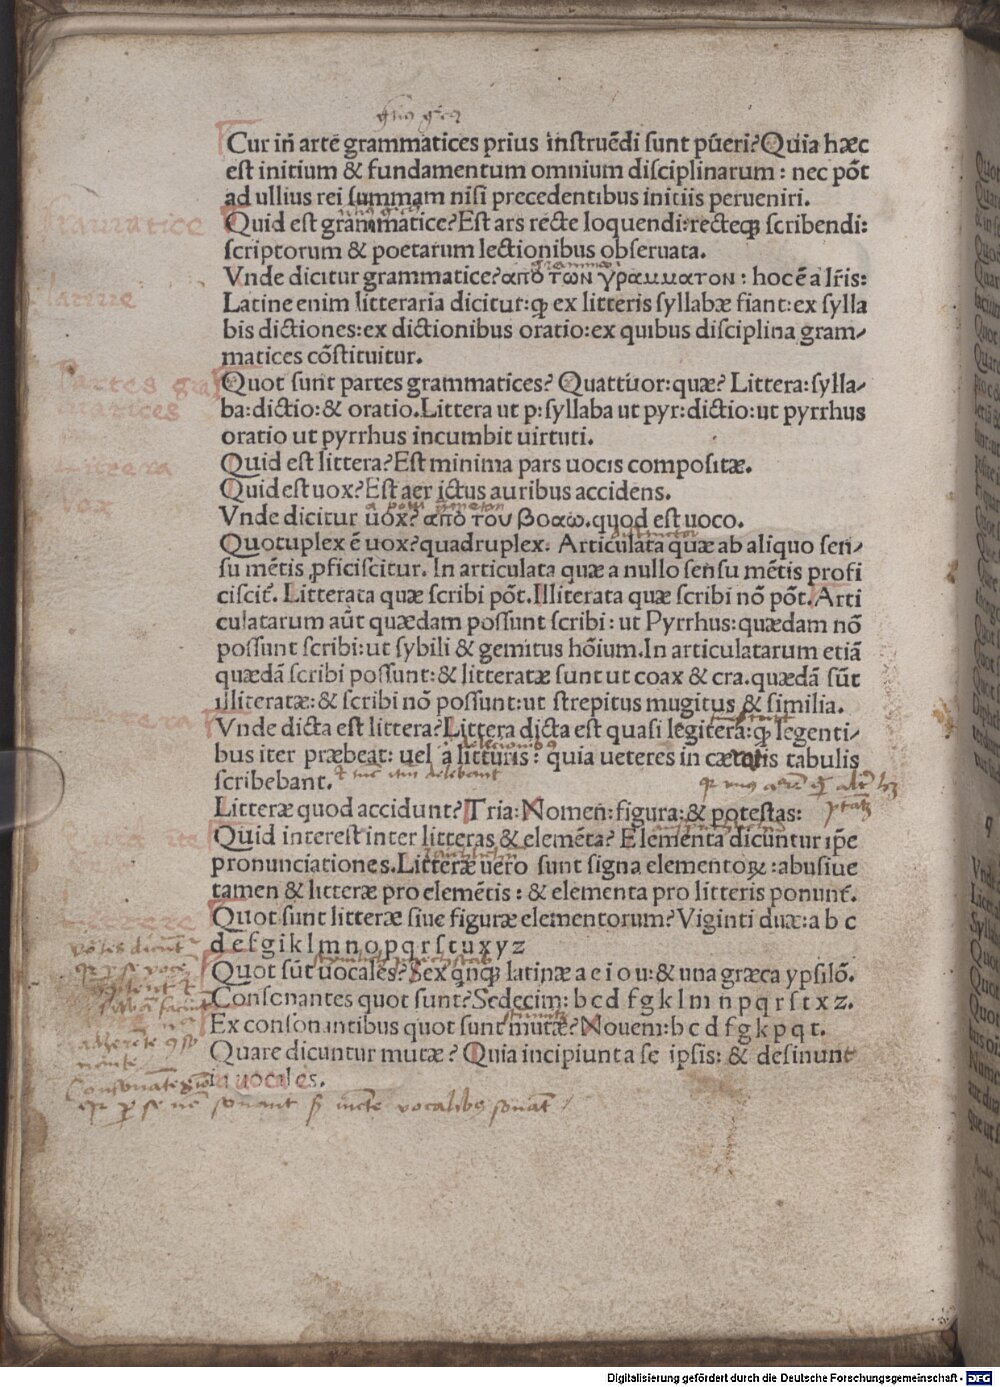 Cur in̄ artē grammatices prius instruēdi sunt pueri? Quia hæc
est initium & fundamentum omnium disciplinarum: nec pōt
ad ullius rei summam nisi precedentibus iniciis perueniri.
Grammatice
Quid est grammatice? Est ars recte loquendi: recteqꝫ scribendi:
scriptorum & poetarum lectionibus obseruata.
Vnde dicitur grammatice? απὸ τῶν γραμματον: hoc ē a lr̄is:
Latine enim litteraria dicitur: ꝙ ex litteris syllabæ fiant: ex sylla
bis dictiones: ex dictionibus oratio: ex quibus disciplina gram-
matices cōstituitur.
Partes gra
matices
Quot sunt partes grammatices? Quattuor: quæ? Littera: sylla-
ba: dictio: & oratio. Littera ut p: syllaba ut pyr: dictio: ut pyrrhus
oratio ut pyrrhus incumbit uirtuti.
Littera
Quid est littera? Est minima pars uocis compositæ.
Vox
Quid est uox? Est aer ictus auribus accidens.
Vnde dicitur uox? απὸ του βοαω. quod est uoco.
Quotuplex ē uox? quadruplex. Articulata quæ ab aliquo sen-
su mētis ꝓficiscitur. In articulata quæ a nullo sensu mētis profi
ciscit̄. Litterata quæ scribi pōt. Illiterata quæ scribi nō pōt. Arti
culatarum aūt quædam possunt scribi: ut Pyrrhus: quædam nō
possunt scribi: ut sybili & gemitus hōium. In articulatarum etiā
quædā scribi possunt: & litteratæ sunt ut coax & cra. quædā sūt
illiteratæ: & scribi nō possunt: ut strepitus mugitus & similia.
Littera
Vnde dicta est littera? Littera dicta est quasi legitera: ꝙ legenti-
bus iter præbeat: uel a lituris: quia ueteres in cæratis tabulis
scribebant.
Litteræ quod accidunt? Tria: Nomen: figura: & potestas:
Quid interest inter litteras & elemēta? Elementa dicuntur ip̄e
pronunciationes. Litteræ uero sunt signa elementoꝝ: abusiue
tamen & litteræ pro elemētis: & elementa pro litteris ponunt̄.
Littere
Quot sunt litteræ siue figuræ elementorum? Viginti duæ: a b c
d e f g i k l m n o p q r s t u x y z
Quot sūt uocales? Sex qnqꝫ latinæ a e i o u: & una græca ypsilō.
Consonantes quot sunt? Sedecim: b c d f g k l m n p q r s t x z.
Ex consonantibus quot sunt mutæ? Nouem: b c d f g k p q t.
Quare dicuntur mutæ? Quia incipiunt a se ipsis: & desinunt
in uocales.
Digitalisierung gefördert durch die Deutsche Forschungsgemeinschaft - DFG